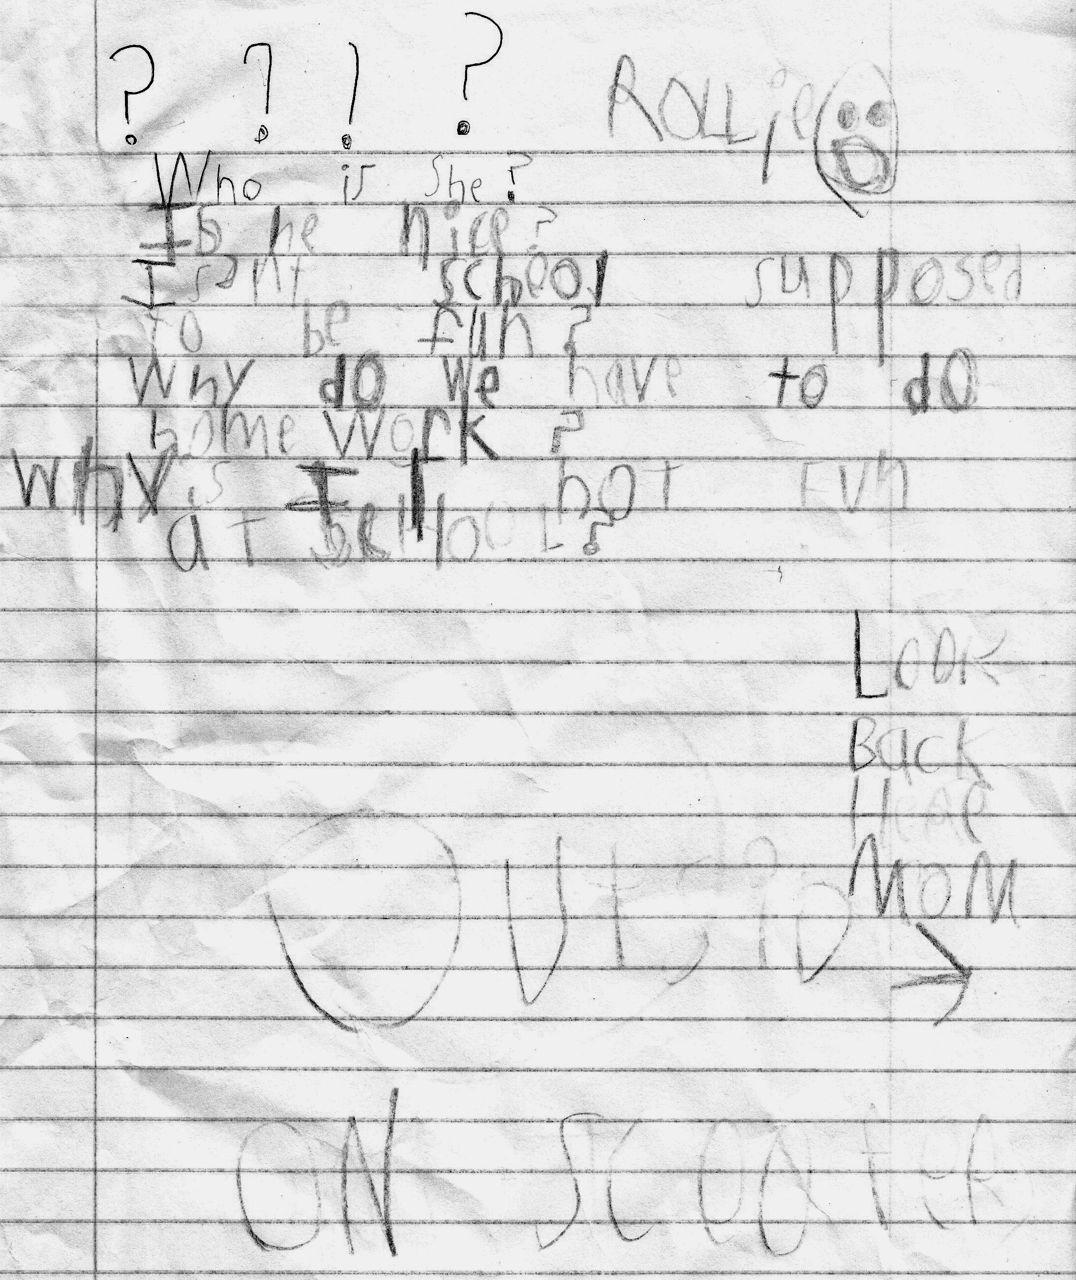 ? ? ! ? ROLLie
Who is She?
Is he nice?
Isant school supposed
to be fun?
Why do we have to do
home work?
Why is It not FUN
aT SCHOOL?
Look
Back
Here
MOM
ON SCOOteR